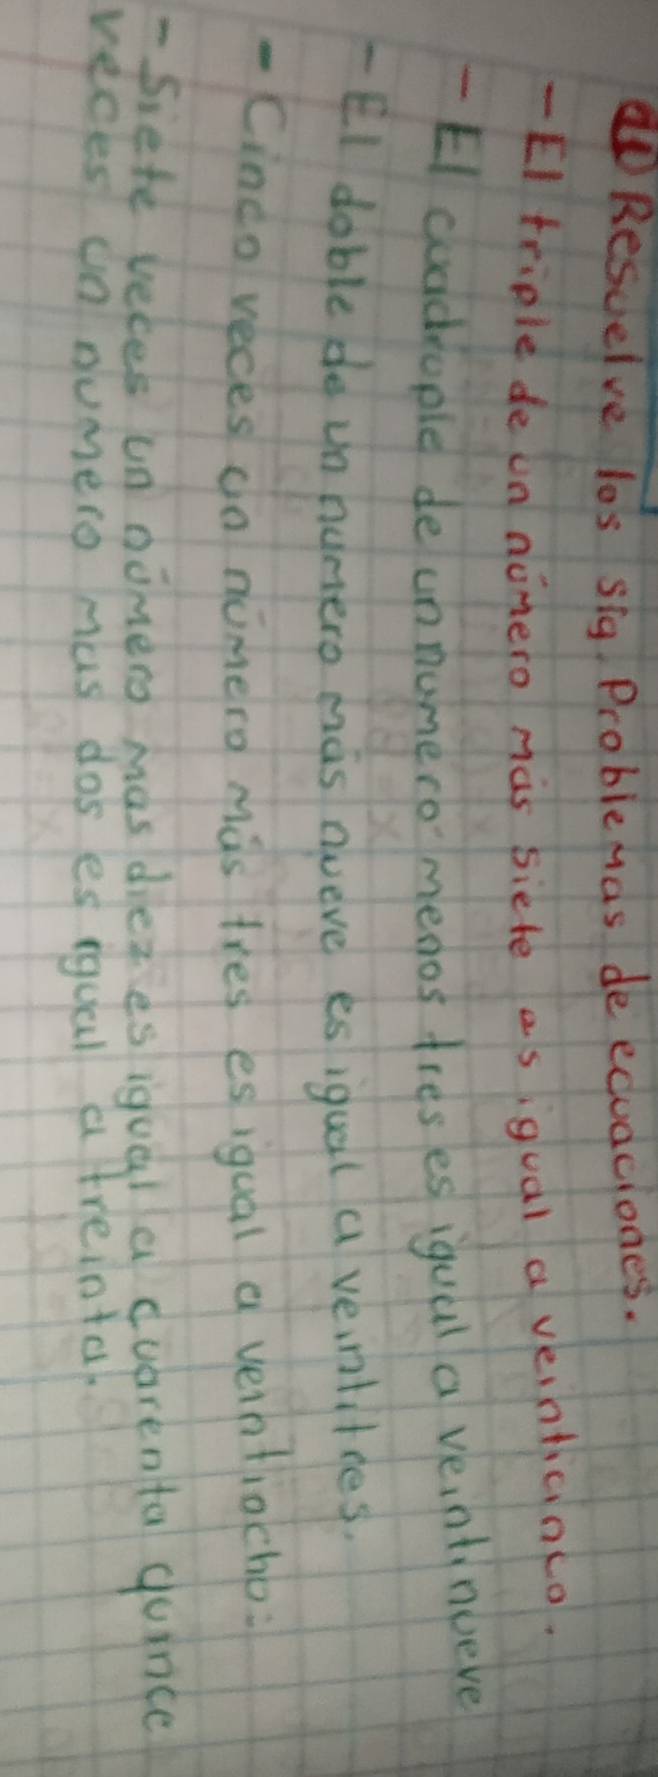 Resuelve los sig. Problemas de ecuaciones.
- El triple de un número más siete es igual a veinticinco.
- El cuadruple de un numero menos tres es igual a veintinueve
- El doble de un numero más nueve es igual a veintitres.
- Cinco veces un número más tres es igual a veintiocho.
- Siete veces un número mas diez es igual a cuarenta quince
veces un numero mas dos es igual a treinta.